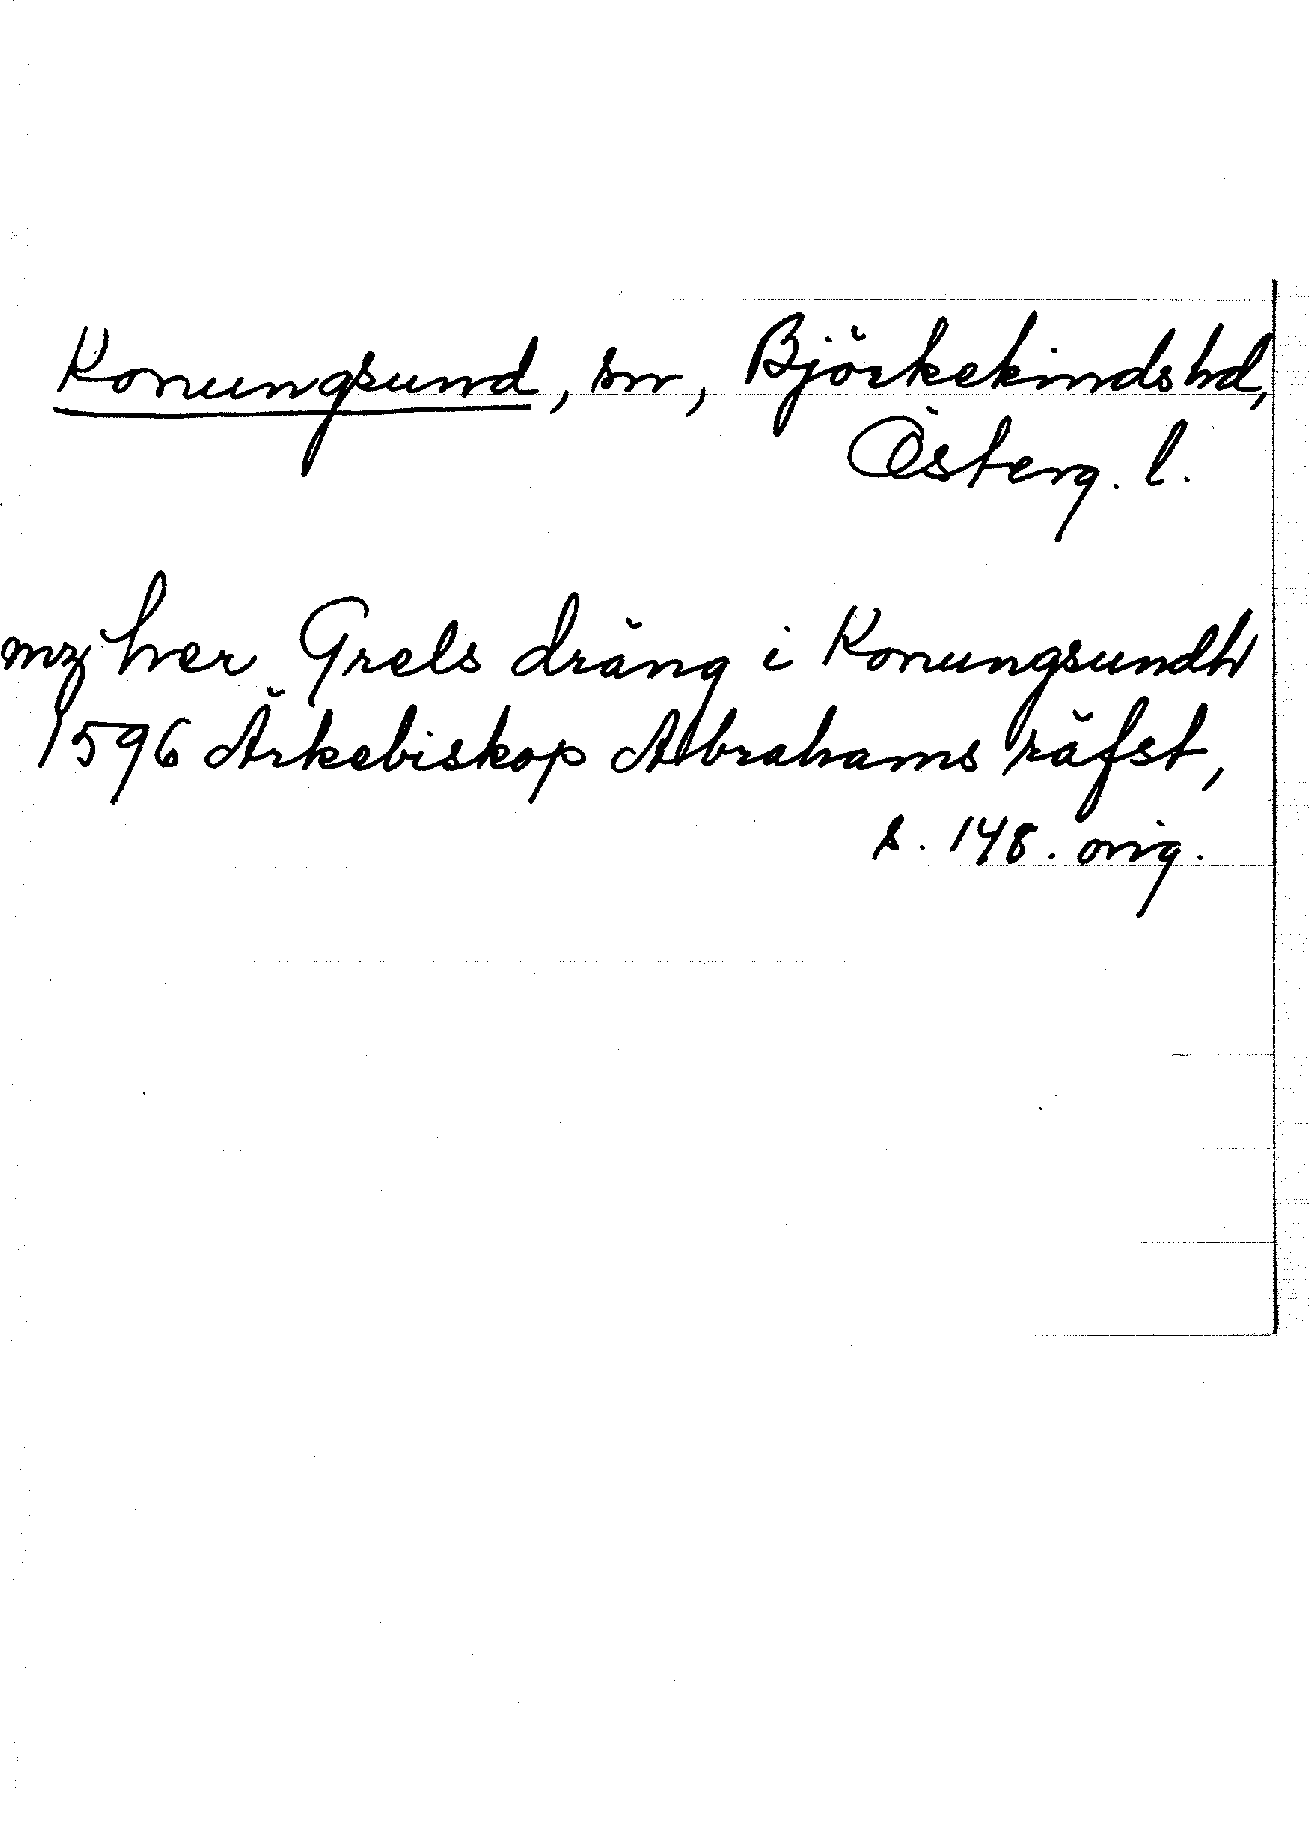 Konungsund, sn, Björkekinds hd,
Österg. l.
mz her Grels dräng i Konungsundh
1596 Ärkebiskop Abrahams räfst,
s. 148. orig.